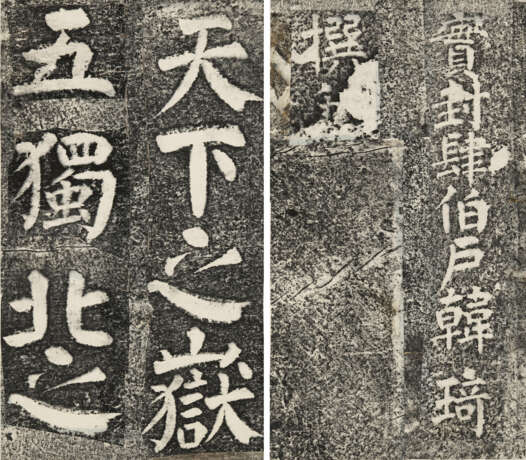 實封肆伯戶韓琦
撰
天下之嶽
五獨北之